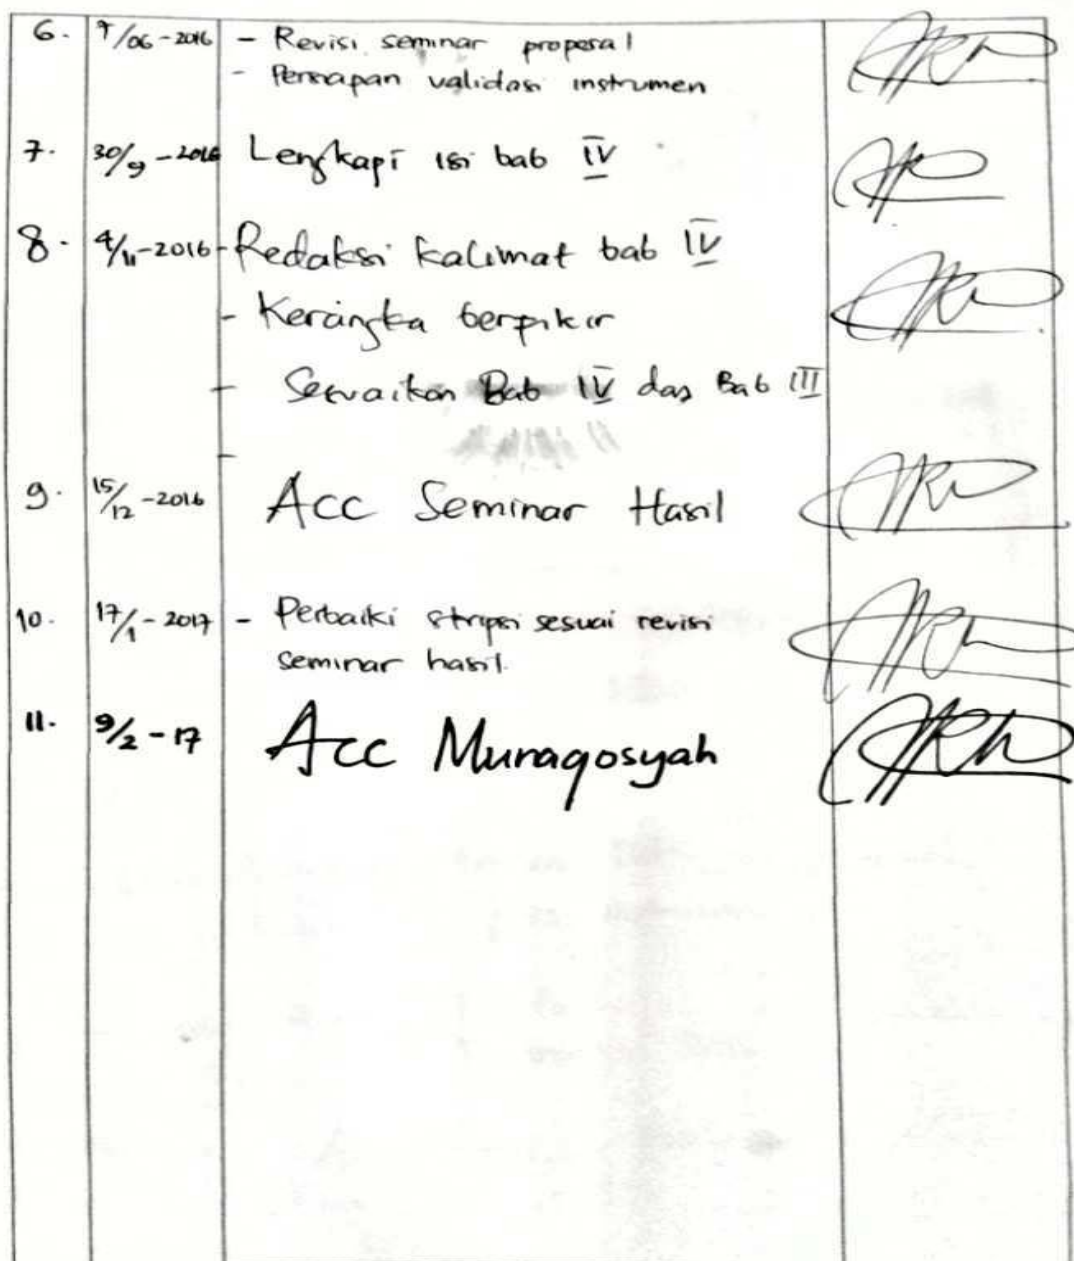 6. 9/06-2016 - Revisi seminar proposal
- Persiapan validasi instrumen
7. 30/9-2016 Lengkapi isi bab IV
8. 4/11-2016 - Redaksi kalimat bab IV
- Kerangka berpikir
- Sesuaikan Bab IV dan Bab III
-
9. 15/12-2016 Acc Seminar Hasil
10. 17/1-2017 - Perbaiki skripsi sesuai revisi
seminar hasil.
11. 9/2-17 Acc Munaqosyah